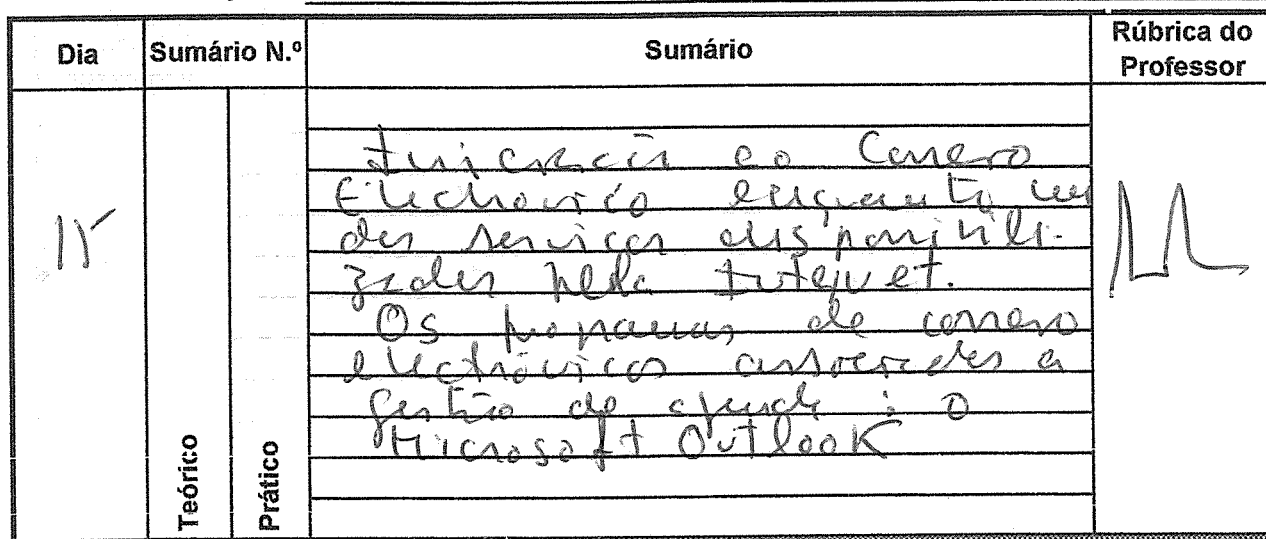 Dia Sumário N.º Sumário Rúbrica do Professor
Teórico
Prático
15
Iniciação ao Correio
Electrónico enquanto um
dos serviços disponibili-
zados pela Internet.
Os programas de correio
electrónico associados a
gestão de agenda: o
Microsoft Outlook